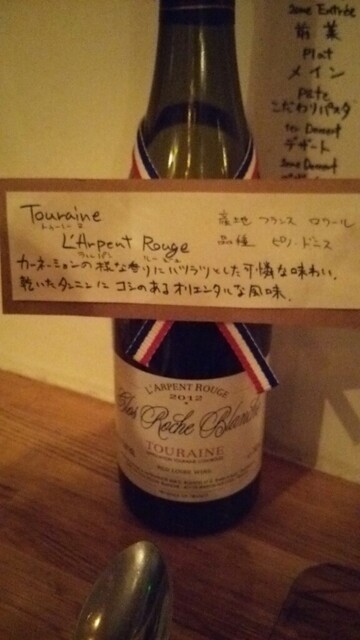 2ème Entrée
前菜
Plat
メイン
Pâte
こだわりパスタ
1er Dessert
デザート
2ème Dessert
Touraine
トゥーレーヌ
産地 フランス ロワール
L'Arpent Rouge
品種 ピノ・ドニス
カーネーションの様な香りにハツラツとした可憐な味わい。
乾いたタンニンにコシのあるオリエンタルな風味。
L'ARPENT ROUGE
2012
Clos Roche Blanche
TOURAINE
RED LOIRE WINE